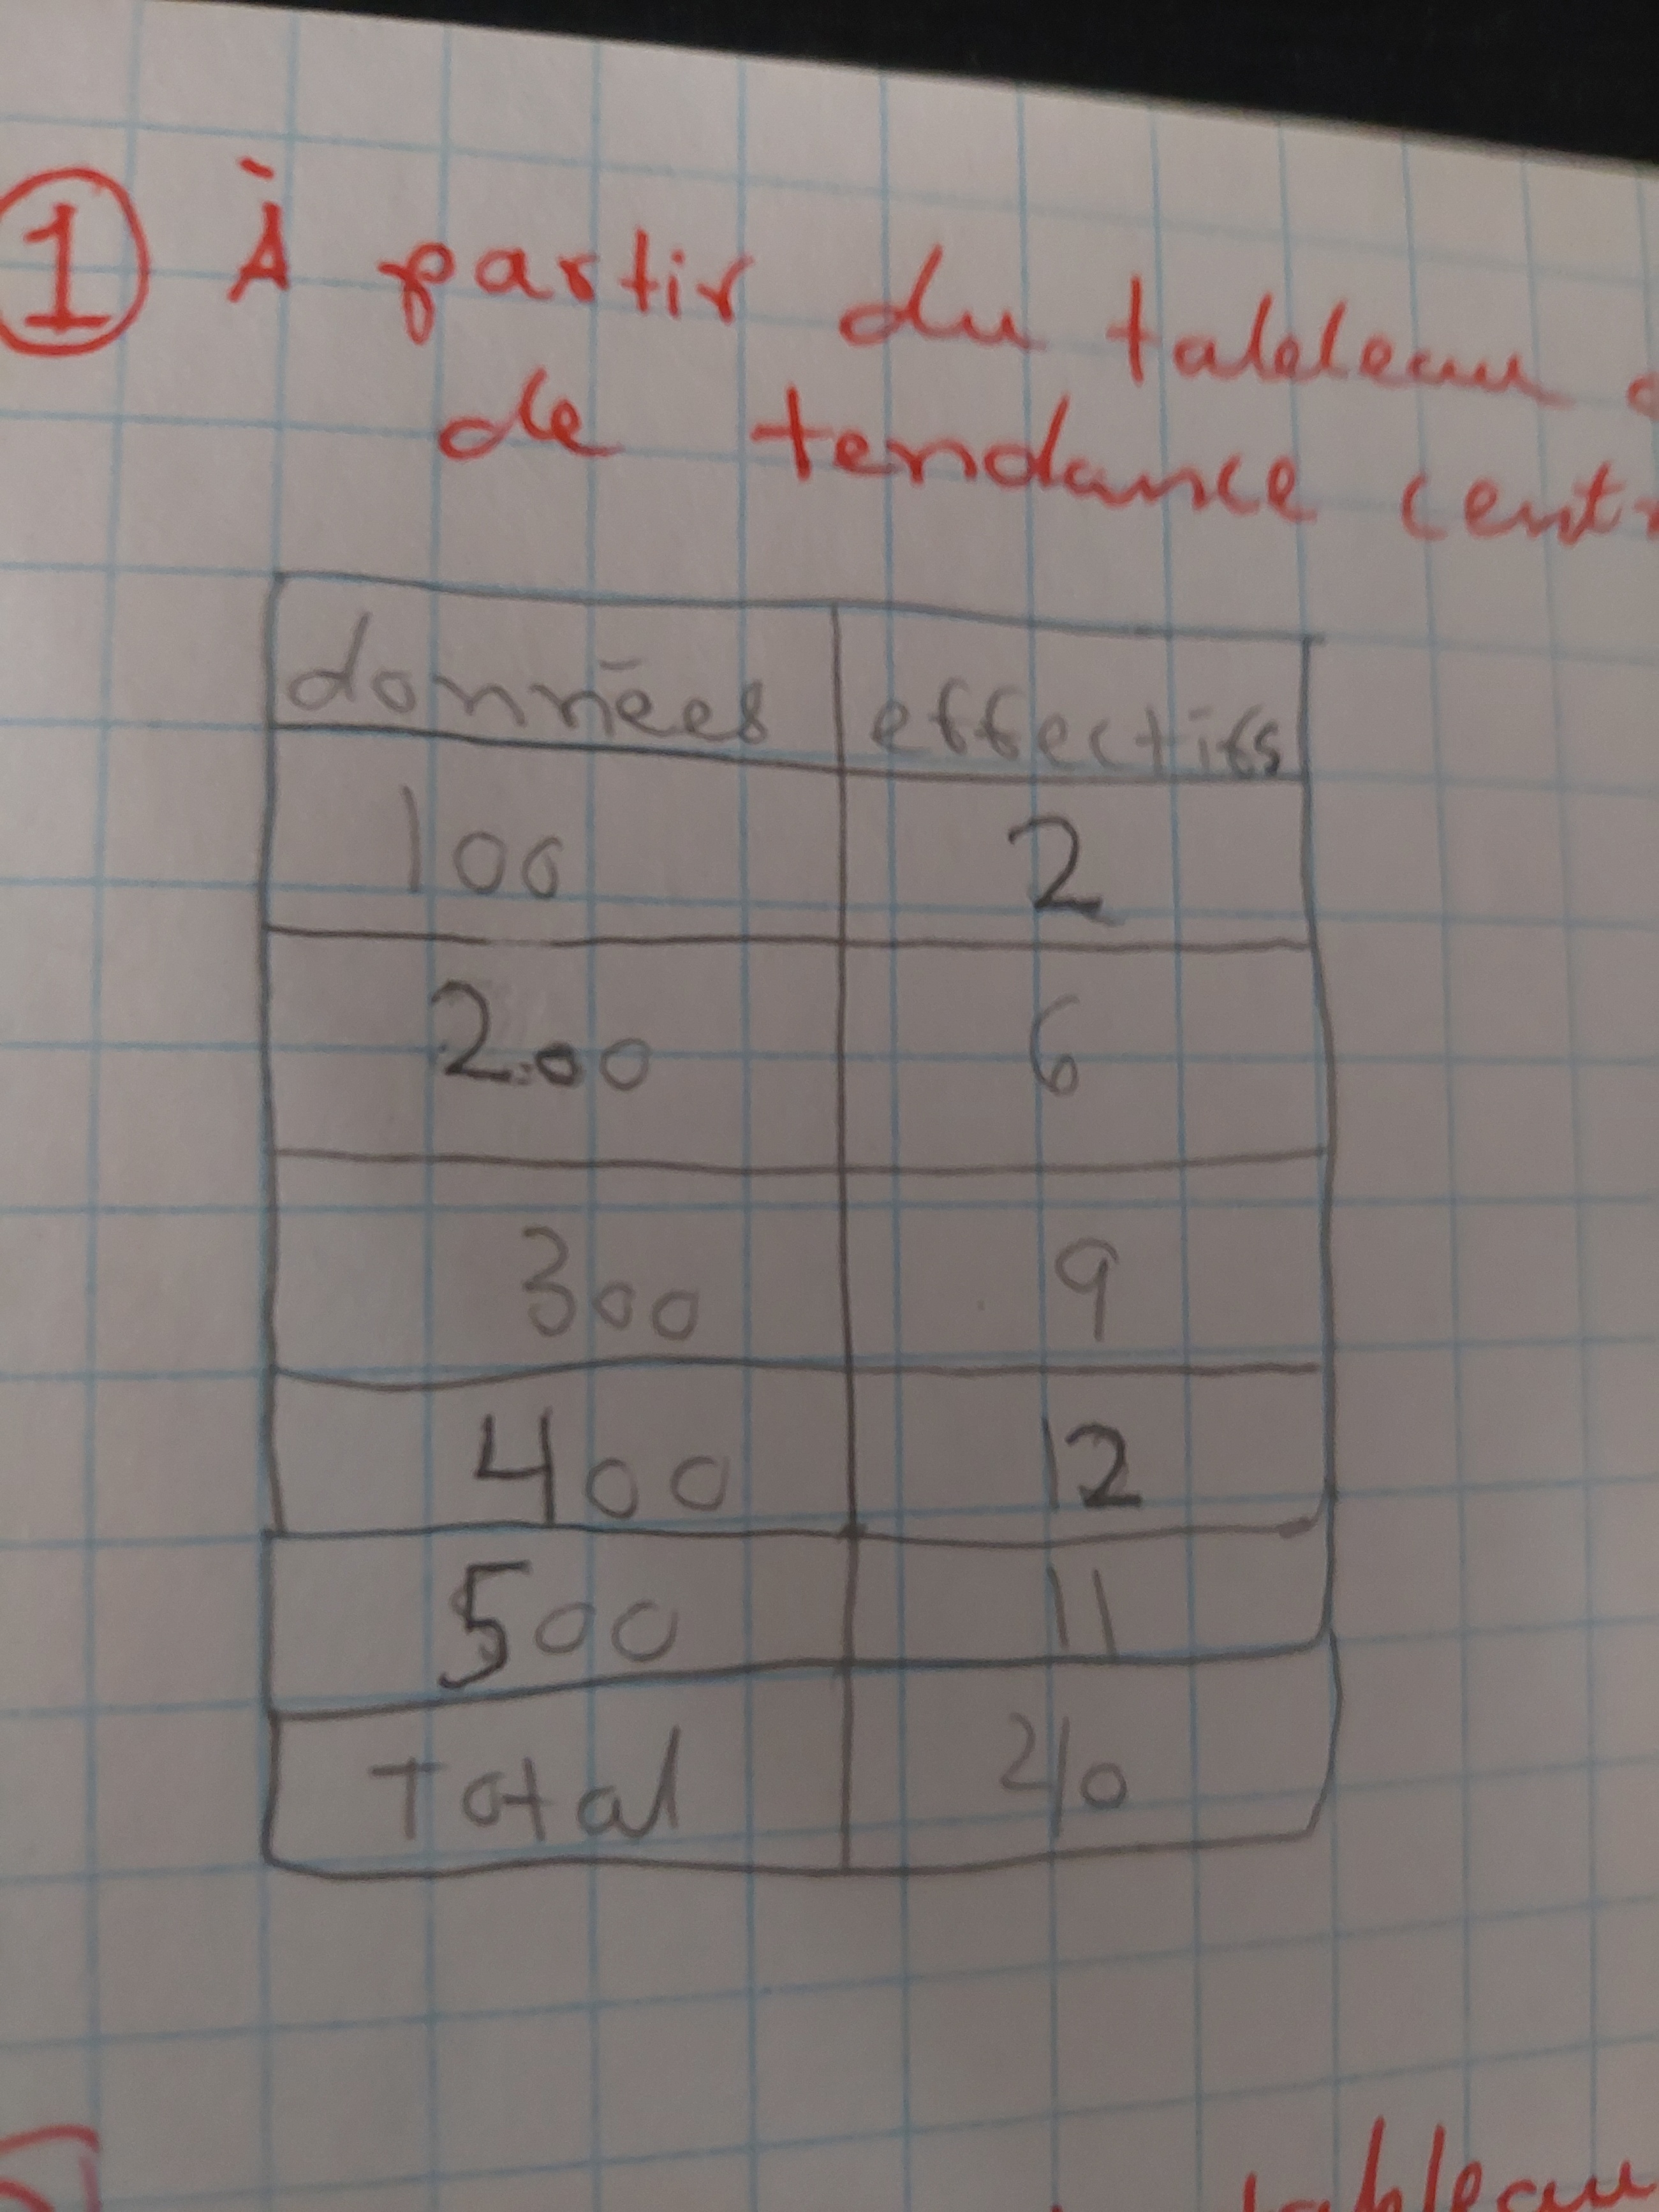 1 À partir du tableau
de tendance cent
données effectifs
100 2
200 6
300 9
400 12
500 11
Total 40
tableau